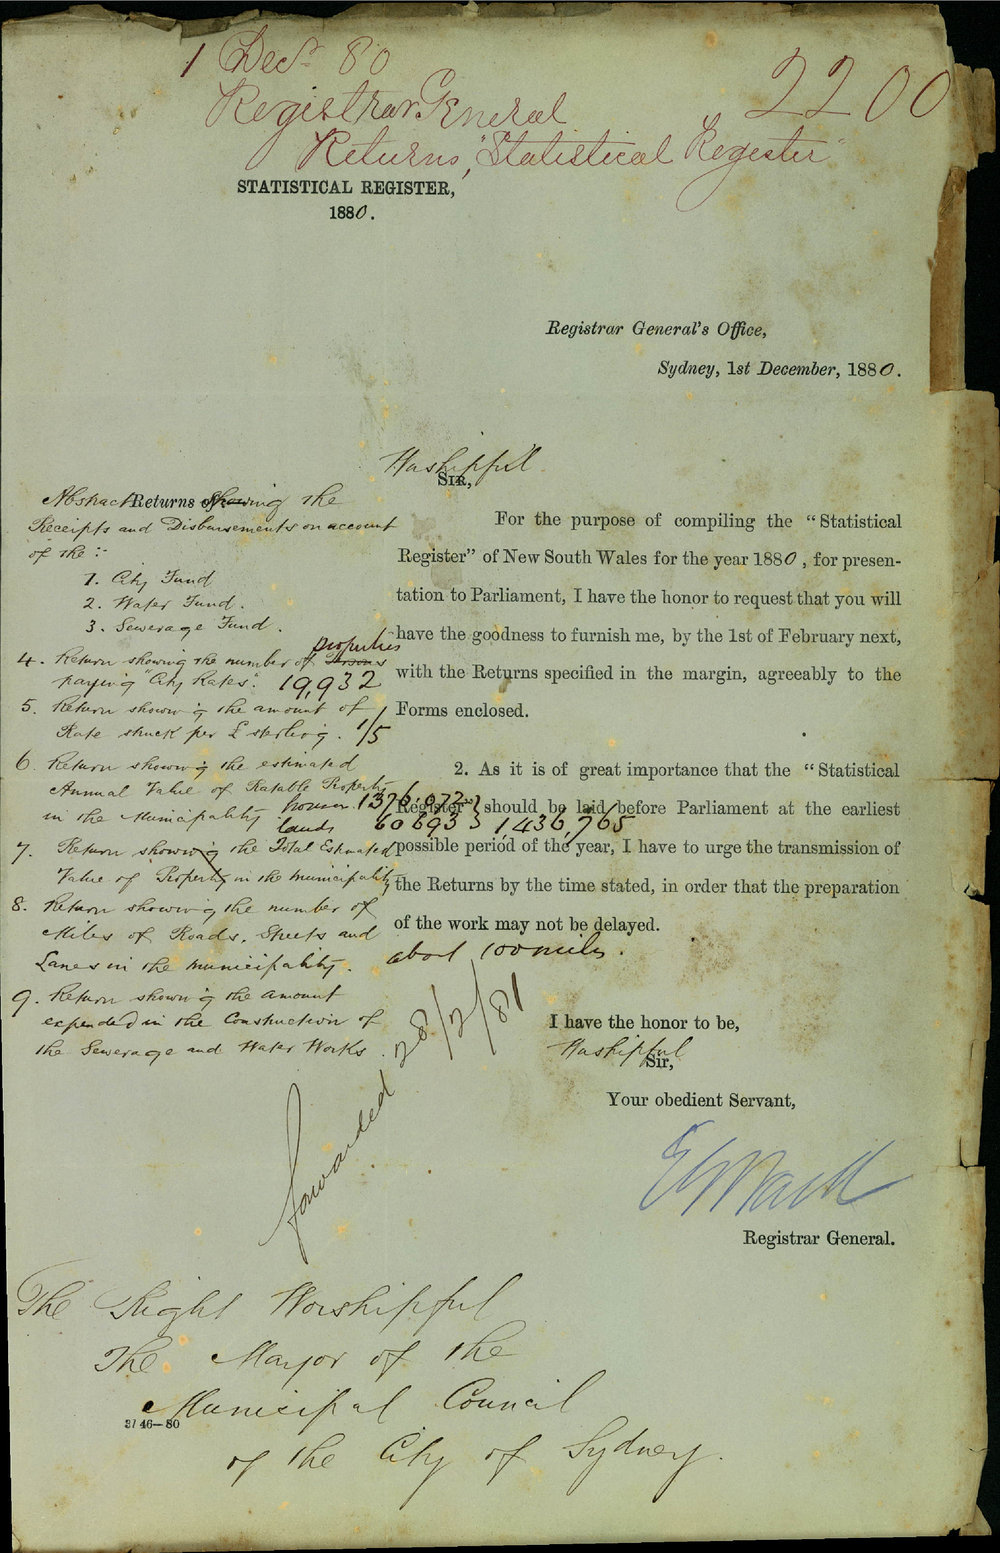 1 Decr. 80
2200
Registrar General
Returns, "Statistical Register"
STATISTICAL REGISTER,
1880.
Registrar General's Office,
Sydney, 1st December, 1880.
Worshipful
SIR,
For the purpose of compiling the "Statistical
Register" of New South Wales for the year 1880, for presen-
tation to Parliament, I have the honor to request that you will
have the goodness to furnish me, by the 1st of February next,
with the Returns specified in the margin, agreeably to the
Forms enclosed.
2. As it is of great importance that the "Statistical
Register" should be laid before Parliament at the earliest
possible period of the year, I have to urge the transmission of
the Returns by the time stated, in order that the preparation
of the work may not be delayed.
Abstract Returns of showing the
Receipts and Disbursements on account
of the :-
1. City Fund
2. Water Fund.
3. Sewerage Fund.
properties
4. Return showing the number of Persons
paying "City Rates". 19,932
5. Return showing the amount of
Rate struck per £ sterling. 1/5
6. Return showing the estimated
Annual Value of Ratable Property
in the Municipality houses 1376,072
lands 60 693 } 1,436,765
7. Return showing the Total Estimated
Value of Property in the Municipality
8. Return showing the number of
Miles of Roads, Streets and
Lanes in the Municipality. about 100 miles.
9. Return showing the amount
expended in the Construction of
the Sewerage and Water Works.
forwarded 28/2/81
I have the honor to be,
Worshipful
Sir,
Your obedient Servant,
Registrar General.
The Right Worshipful
The Mayor of the
Municipal Council
3146—80
of the City of Sydney.